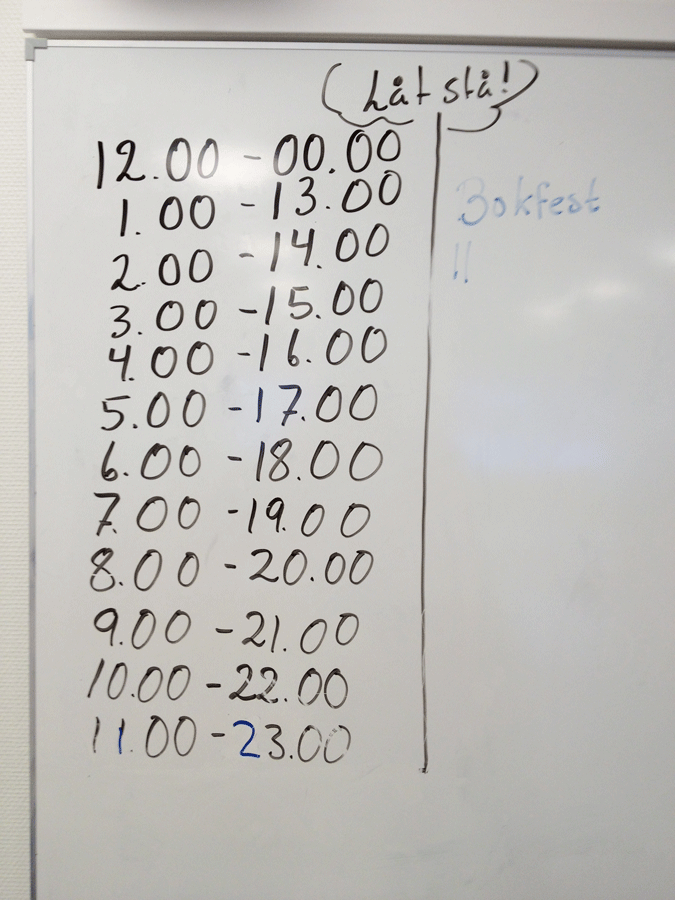 Låt stå!
12.00 - 00.00
1.00 - 13.00
2.00 - 14.00
3.00 - 15.00
4.00 - 16.00
5.00 - 17.00
6.00 - 18.00
7.00 - 19.00
8.00 - 20.00
9.00 - 21.00
10.00 - 22.00
11.00 - 23.00
Bokfest
!!